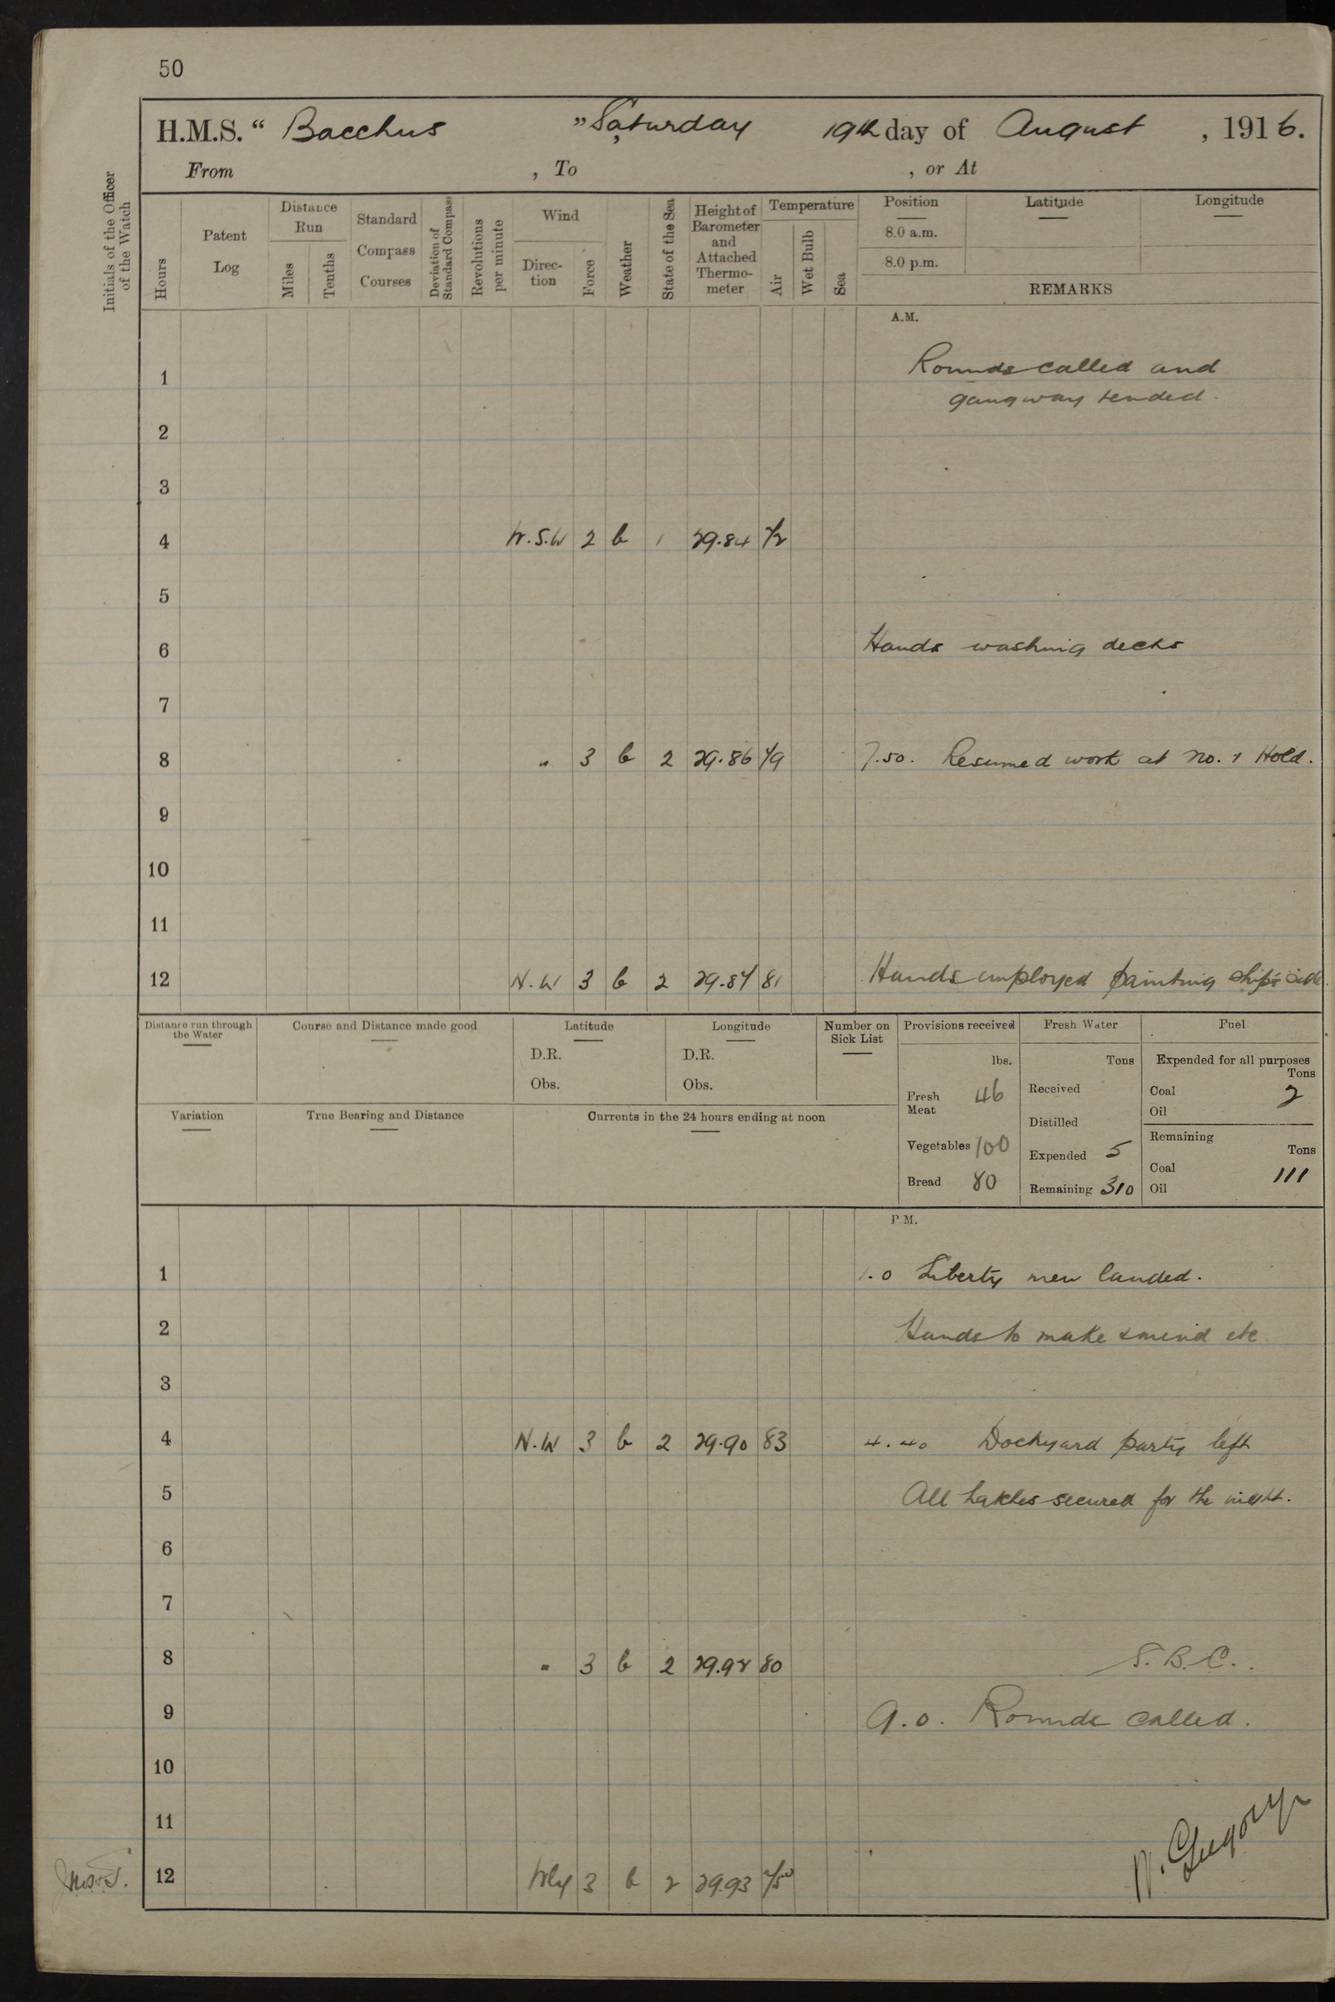 50
H.M.S. “ Bacchus ” Saturday 19th day of August , 1916.
From , To , or At
Initials of the Officer of the Watch
Hours
Patent Log
Distance Run
Miles
Tenths
Standard Compass Courses
Deviation of Standard Compass
Revolutions per minute
Wind
Direc- tion
Force
Weather
State of the Sea
Height of Barometer and Attached Thermo- meter
Temperature
Air
Wet Bulb
Sea
Position
8.0 a.m.
8.0 p.m.
Latitude
Longitude
REMARKS
A.M.
1 Rounds called and
gangway tended.
2
3
4 W.S.W 2 b 1 29.84 72
5
6 Hands washing decks
7
8 " 3 b 2 29.86 79 7.50. Resumed work at No. 1 Hold.
9
10
11
12 N.W 3 b 2 29.87 81 Hands employed painting ship's side.
Distance run through the Water
Course and Distance made good
Latitude
D.R.
Obs.
Longitude
D.R.
Obs.
Number on Sick List
Provisions received
lbs.
Fresh Meat 46
Vegetables 100
Bread 80
Fresh Water
Tons
Received
Distilled
Expended 5
Remaining 310
Fuel
Expended for all purposes
Tons
Coal 2
Oil
Remaining
Tons
Coal 111
Oil
Variation
True Bearing and Distance
Currents in the 24 hours ending at noon
P.M.
1 1.0 Liberty men landed.
2 Hands to make & mend etc.
3
4 N.W 3 b 2 29.90 83 4.40 Dockyard party left
5 All hatches secured for the night.
6
7
8 " 3 b 2 29.92 80 S.B.C.
9 9.0. Rounds called.
10
11
W. Gregory
12 Wly 3 b 2 29.93 75